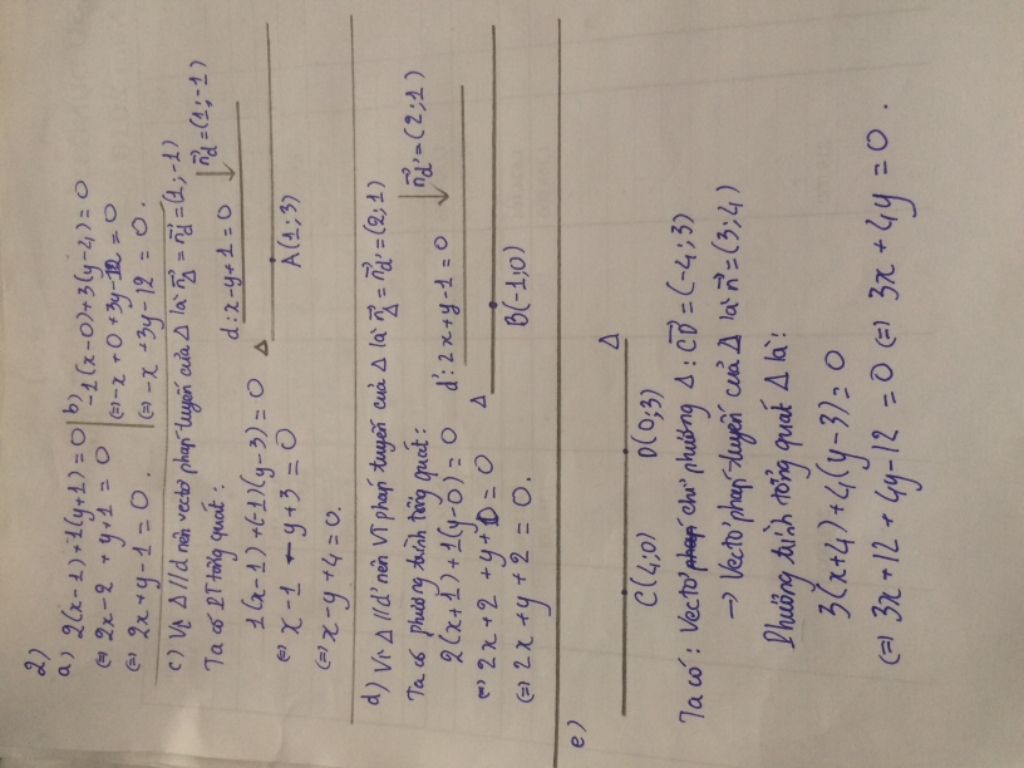 2)
a) 2(x-1)+1(y+1)=0
(=) 2x-2 +y+1 = 0
(=) 2x+y-1=0.
b) -1(x-0)+3(y-4)=0
(=) -x+0+3y-12=0
(=) -x +3y-12 = 0.
c) Vì Δ//d nên vectơ pháp tuyến của Δ là n⃗Δ = n⃗d =(1;-1)
Ta có PT tổng quát:
1(x-1)+(-1)(y-3)=0
(=) x-1 -y+3=0
(=) x-y+4=0.
d: 2-y+1=0
n⃗d=(1;-1)
Δ
A(1;3)
d) Vì Δ//d' nên VT pháp tuyến của Δ là n⃗Δ = n⃗d' =(2;1)
Ta có phương trình tổng quát:
2(x+1)+1(y-0)=0
(=) 2x+2 +y+0=0
(=) 2x+y+2=0.
d': 2x+y-1=0
n⃗d'=(2;1)
Δ
B(-1;0)
e)
C(4;0) D(0;3) Δ
Ta có: Vectơ chỉ phương Δ: CD⃗=(-4;3)
→ Vectơ pháp tuyến của Δ là n⃗=(3;4)
Phương trình tổng quát Δ là:
3(x+4)+4(y-3)=0
(=) 3x+12+4y-12=0 (=) 3x+4y=0.